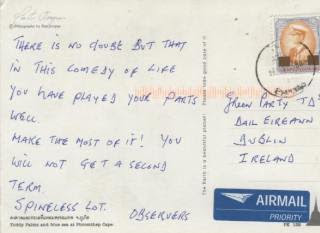 THERE IS NO DOUBT BUT THAT
IN THIS COMEDY OF LIFE
YOU HAVE PLAYED YOUR PARTS
WELL.
MAKE THE MOST OF IT! YOU
WILL NOT GET A SECOND
TERM.
SPINELESS LOT.
OBSERVERS
Teddy Palms and blue sea at Phromthep Cape.
The Earth is a beautiful planet!
Please take good care of it
GREEN PARTY TD'S
DAIL EIREANN
DUBLIN
IRELAND
AIRMAIL
PRIORITY
PK 138